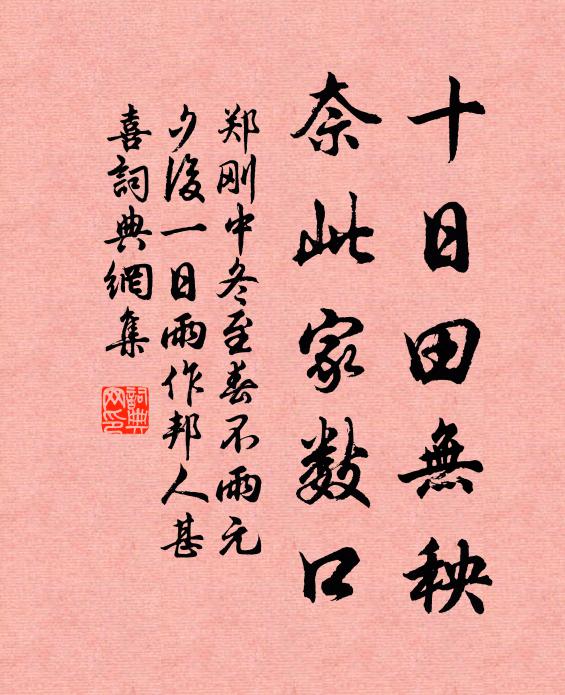 十日田無秧
奈此家数口
郑刚中冬至春不雨元
夕後一日雨作邦人甚
喜詞典網集
詞典
网印